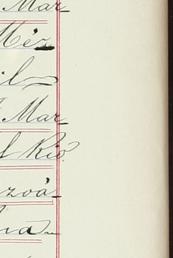 Mar
Méz
il
Mar
l Rio.
zoá
na